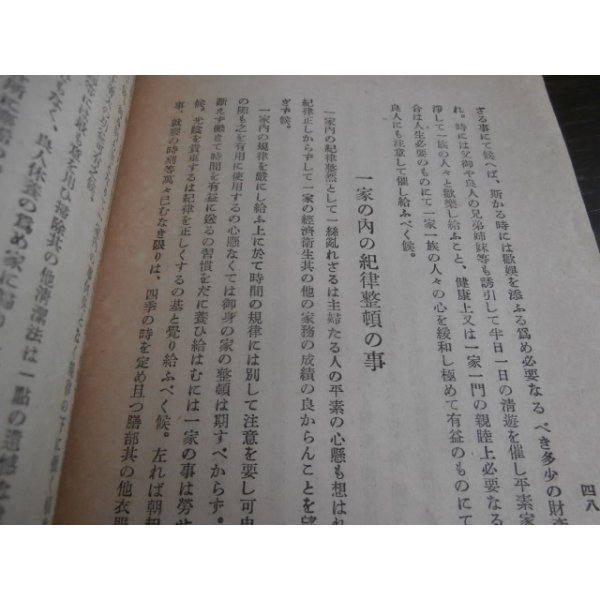 四八
ざる事にて候へば、斯かる時には歡娯を添ふる爲め必要なるべき多少の財
れ。時には父御や良人の兄弟姉妹等も誘引して半日一日の淸遊を催し平素家
滯して一族の人々と歡樂し給ふこと、健康上又は一家一門の親睦上必要なる
合は人生必要のものにて一家一族の人々の心を緩和し極めて有益のものにて
良人にも注意して催し給ふべく候。
一家の內の紀律整頓の事
一家內の紀律整然として一絲亂れざるは主婦たる人の平素の心懸も想はれ
紀律正しからずして一家の經濟衞生其の他の家務の成績の良からんことを望
ぎず候。
一家內の規律を嚴にし給ふ上に於て時間の規律には別して注意を要し可申
の間も之を有用に使用するの心懸なくては御身の家の整頓は期すべからず。
斷えず働きて時間を有益に送るの習慣をだに養ひ給はむには一家の事は勞せ
候。光陰を貴重するは紀律を正しくするの基と覺り給ふべく候。左れば朝起
事、就寢の時刻等萬々已むなき限りは、四季の時を定め且つ膳部其の他衣服
もなく、良人休養の爲め家に歸り
掃除其の他淸潔法は一點の遺憾な